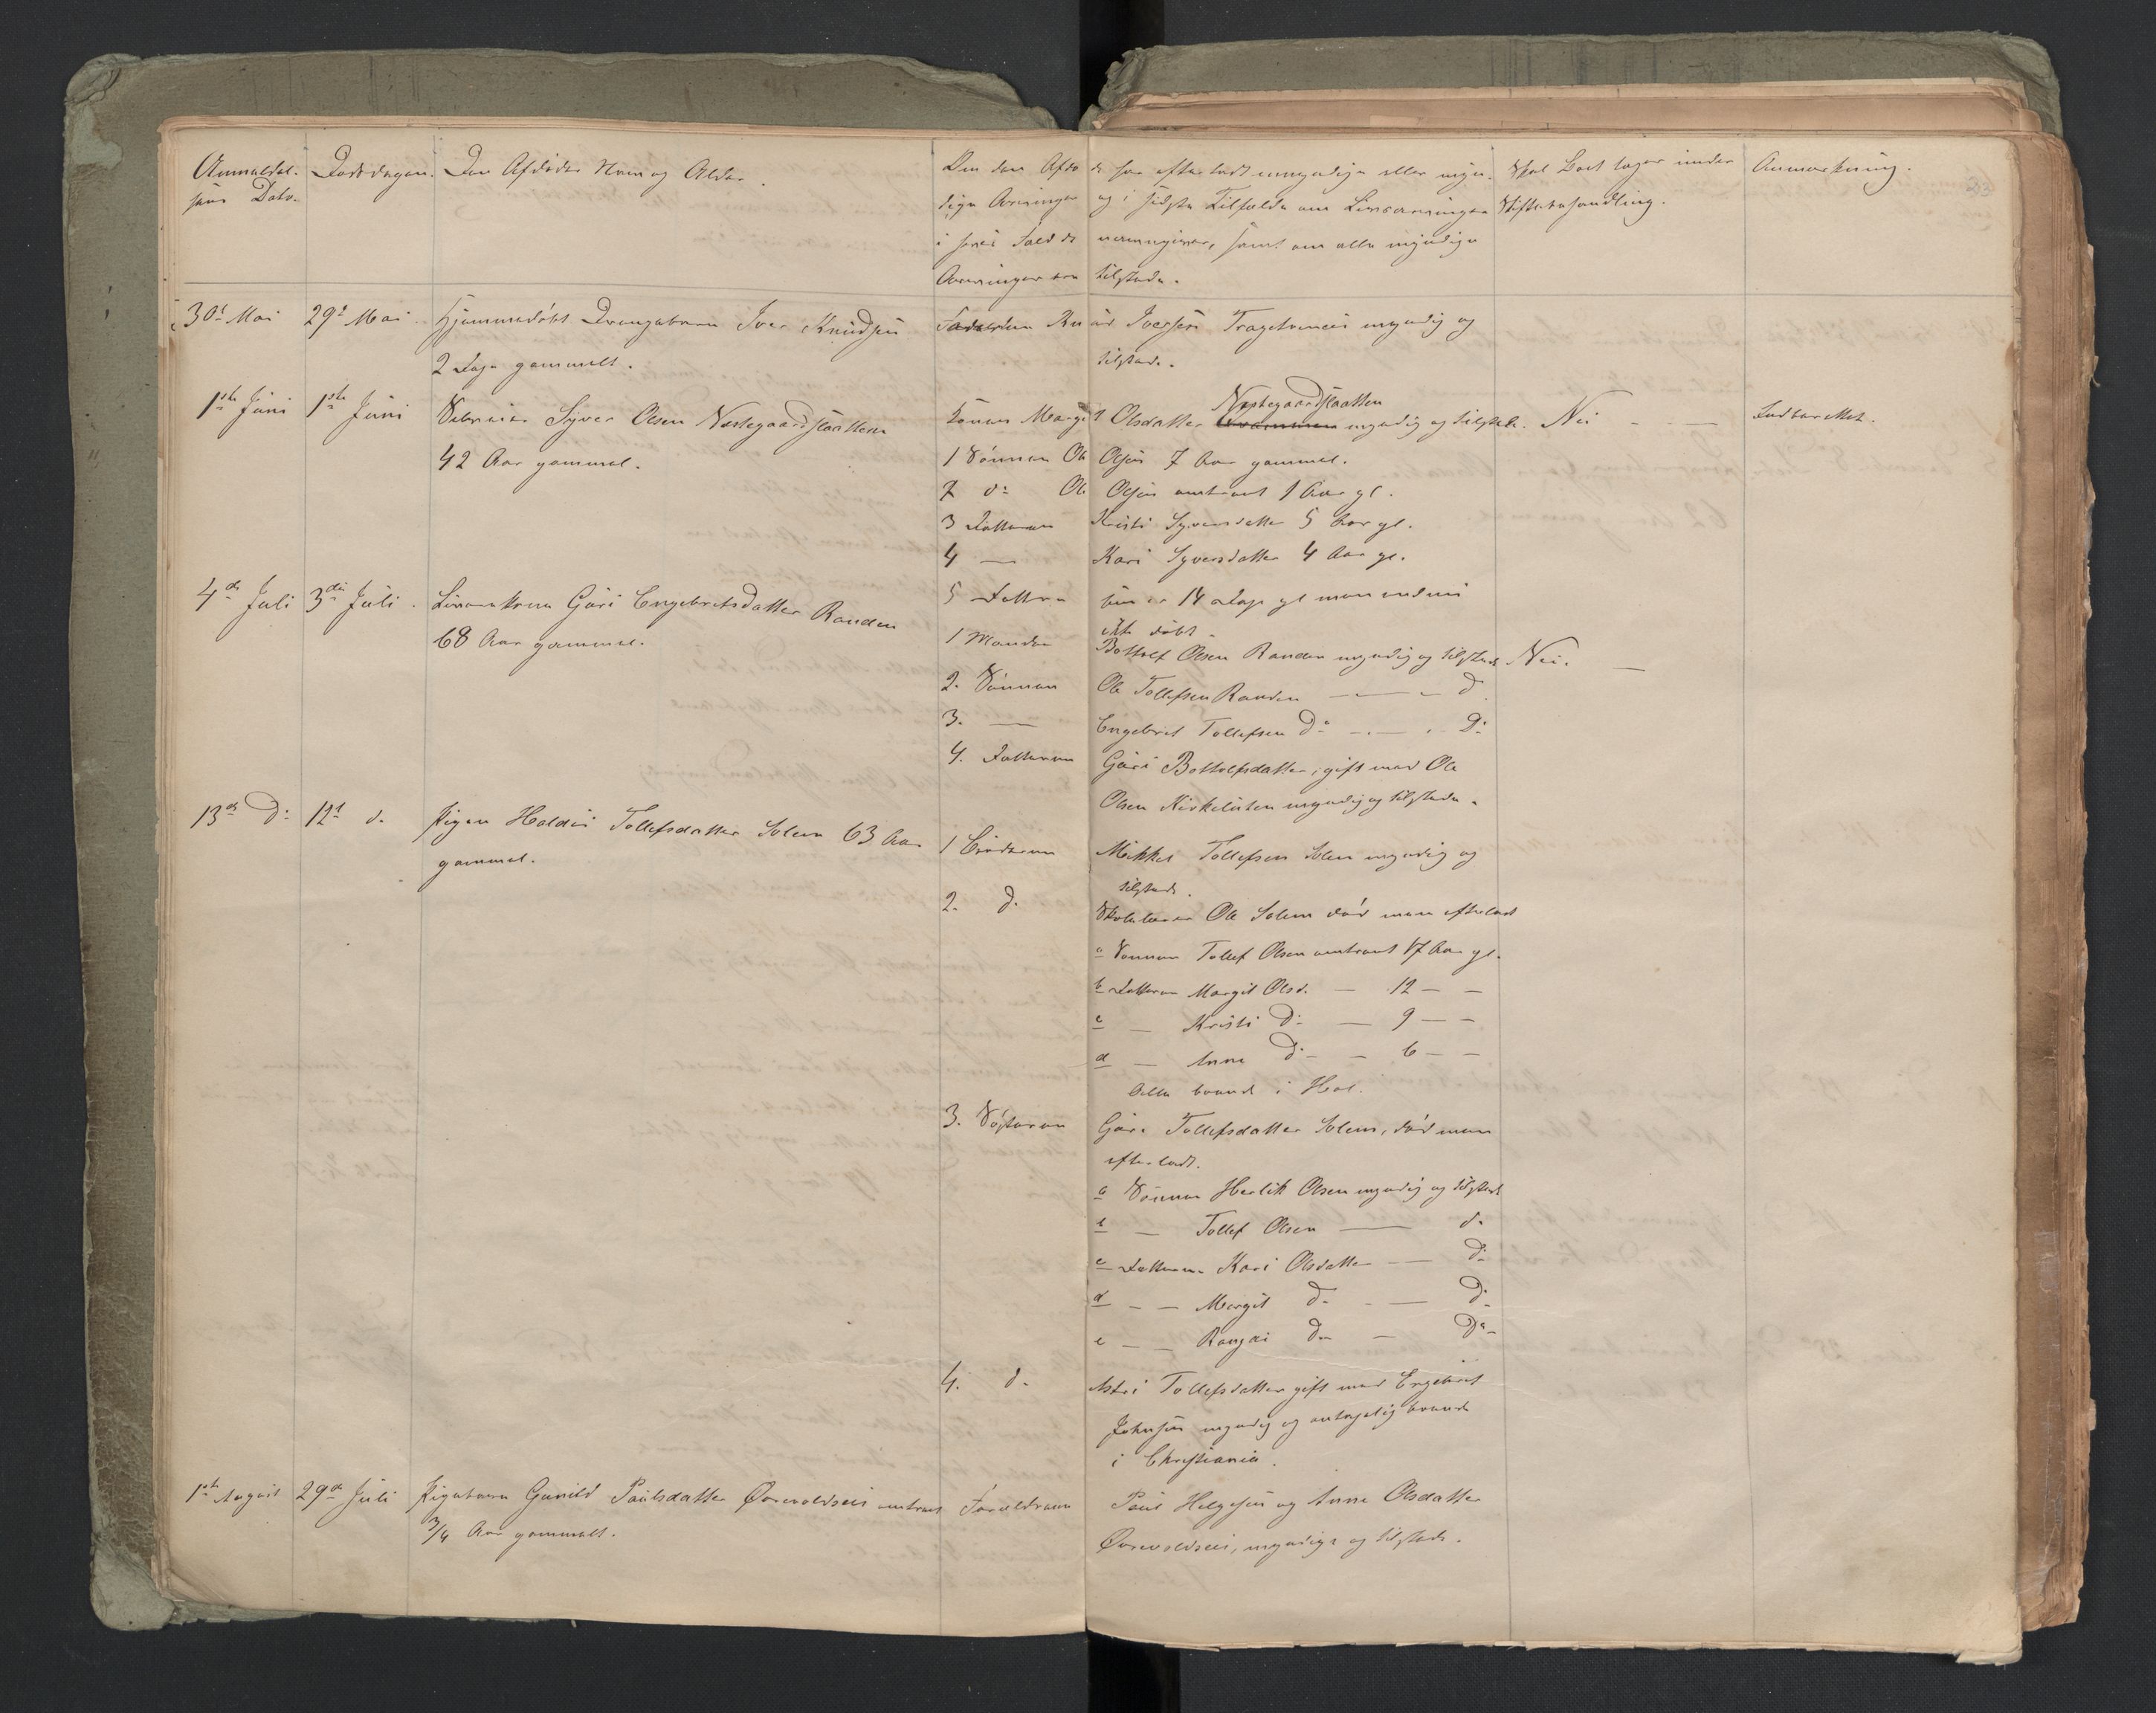 Anmeldel-
sens Dato.
Dødsdagen.
Den Afdødes Navn og Alder.
Om den Afdøde har efterladt umyndige eller myn-
dige Arvinger og i sidste Tilfælde om Livsarvinger
i hvis Fald de navngives, samt om alle myndige
Arvinger ere tilstede.
Skal Boet tages under
Skiftebehandling.
Anmærkning.
23
30te Mai 29de Mai Hjemmedøbt Drengebarn Iver Knudsen Faderen Knud Iversen Trageton myndig og
2 Dage gammelt. tilstede.
1ste Juni 1ste Juni Syver Olsen Nestegaardslaatten Konen Margit Olsdatter Nestegaardslaatten myndig og tilstede. Nei - - Indberettet.
42 Aar gammel. 1 Sønnen Ole Olsen 7 Aar gammel.
2 do Ole Olsen omtrent 1 Aar gl.
3 Datteren Kristi Syversdatter 5 Aar gl.
4 — Kari Syversdatter 4 Aar gl.
4de Juli 3die Juli. Guri Engebretsdatter Randen 5 Datter 14 Dage gl men endnu
ikke døbt.
68 Aar gammel. 1 Manden Bottolf Olsen Randen myndig og tilstede Nei. —
2. Sønnen Ole Tollefsen Randen — — d
3. — Engebret Tollefsen Do — Do
4. Datteren Guri Bottolfsdatter, gift med Ole
Olsen myndig og tilstede.
13de Do 12te d. Pigen Haldis Tollefsdatter Solem 63 Aar
gammel. 1 Broderen Mikkel Tollefsen Solem myndig og
tilstede.
2. d. Skolelærer Ole Solem død men efterladt
a Sønnen Tollef Olsen omtrent 17 Aar gl.
b Datteren Margit Olsd. — 12 — —
c — Kristi Do — 9 — —
d — Anne Do — 6 — —
Alle boende i Hol.
3. Søsteren Guri Tollefsdatter Solem, død men
efterladt.
a Sønnen Herlik Olsen myndig og tilstede
b — Tollef Olsen — d.
c Datteren Kari Olsdatter — Do
d — — Margit Do — Do
e — — Rangdi Do — Do
4. d. Astri Tollefsdatter gift med Engebret
Johnsen myndig og antagelig boende
i Christiania.
1ste August 29de Juli Pigebarn Gunild Paulsdatter Øvrevoldseie omtrent Forældrene Paul Helgesen og Anne Olsdatter
3/4 Aar gammelt. Øvrevoldseie, myndige og tilstede.